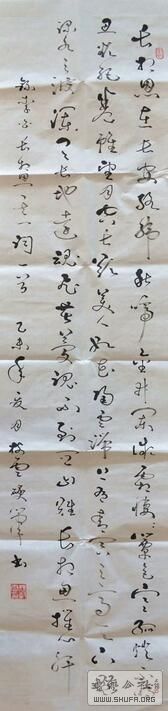 长相思在长安络纬秋啼金井阑微霜凄凄簟色寒孤灯不
思欲绝卷帷望月空长叹美人如花隔云端上有青冥之高天下
渌水之波澜天长地远魂飞苦梦魂不到关山难长相思摧心肝
录李白长相思之一词一首 乙未年
WWW.SHUFA.ORG